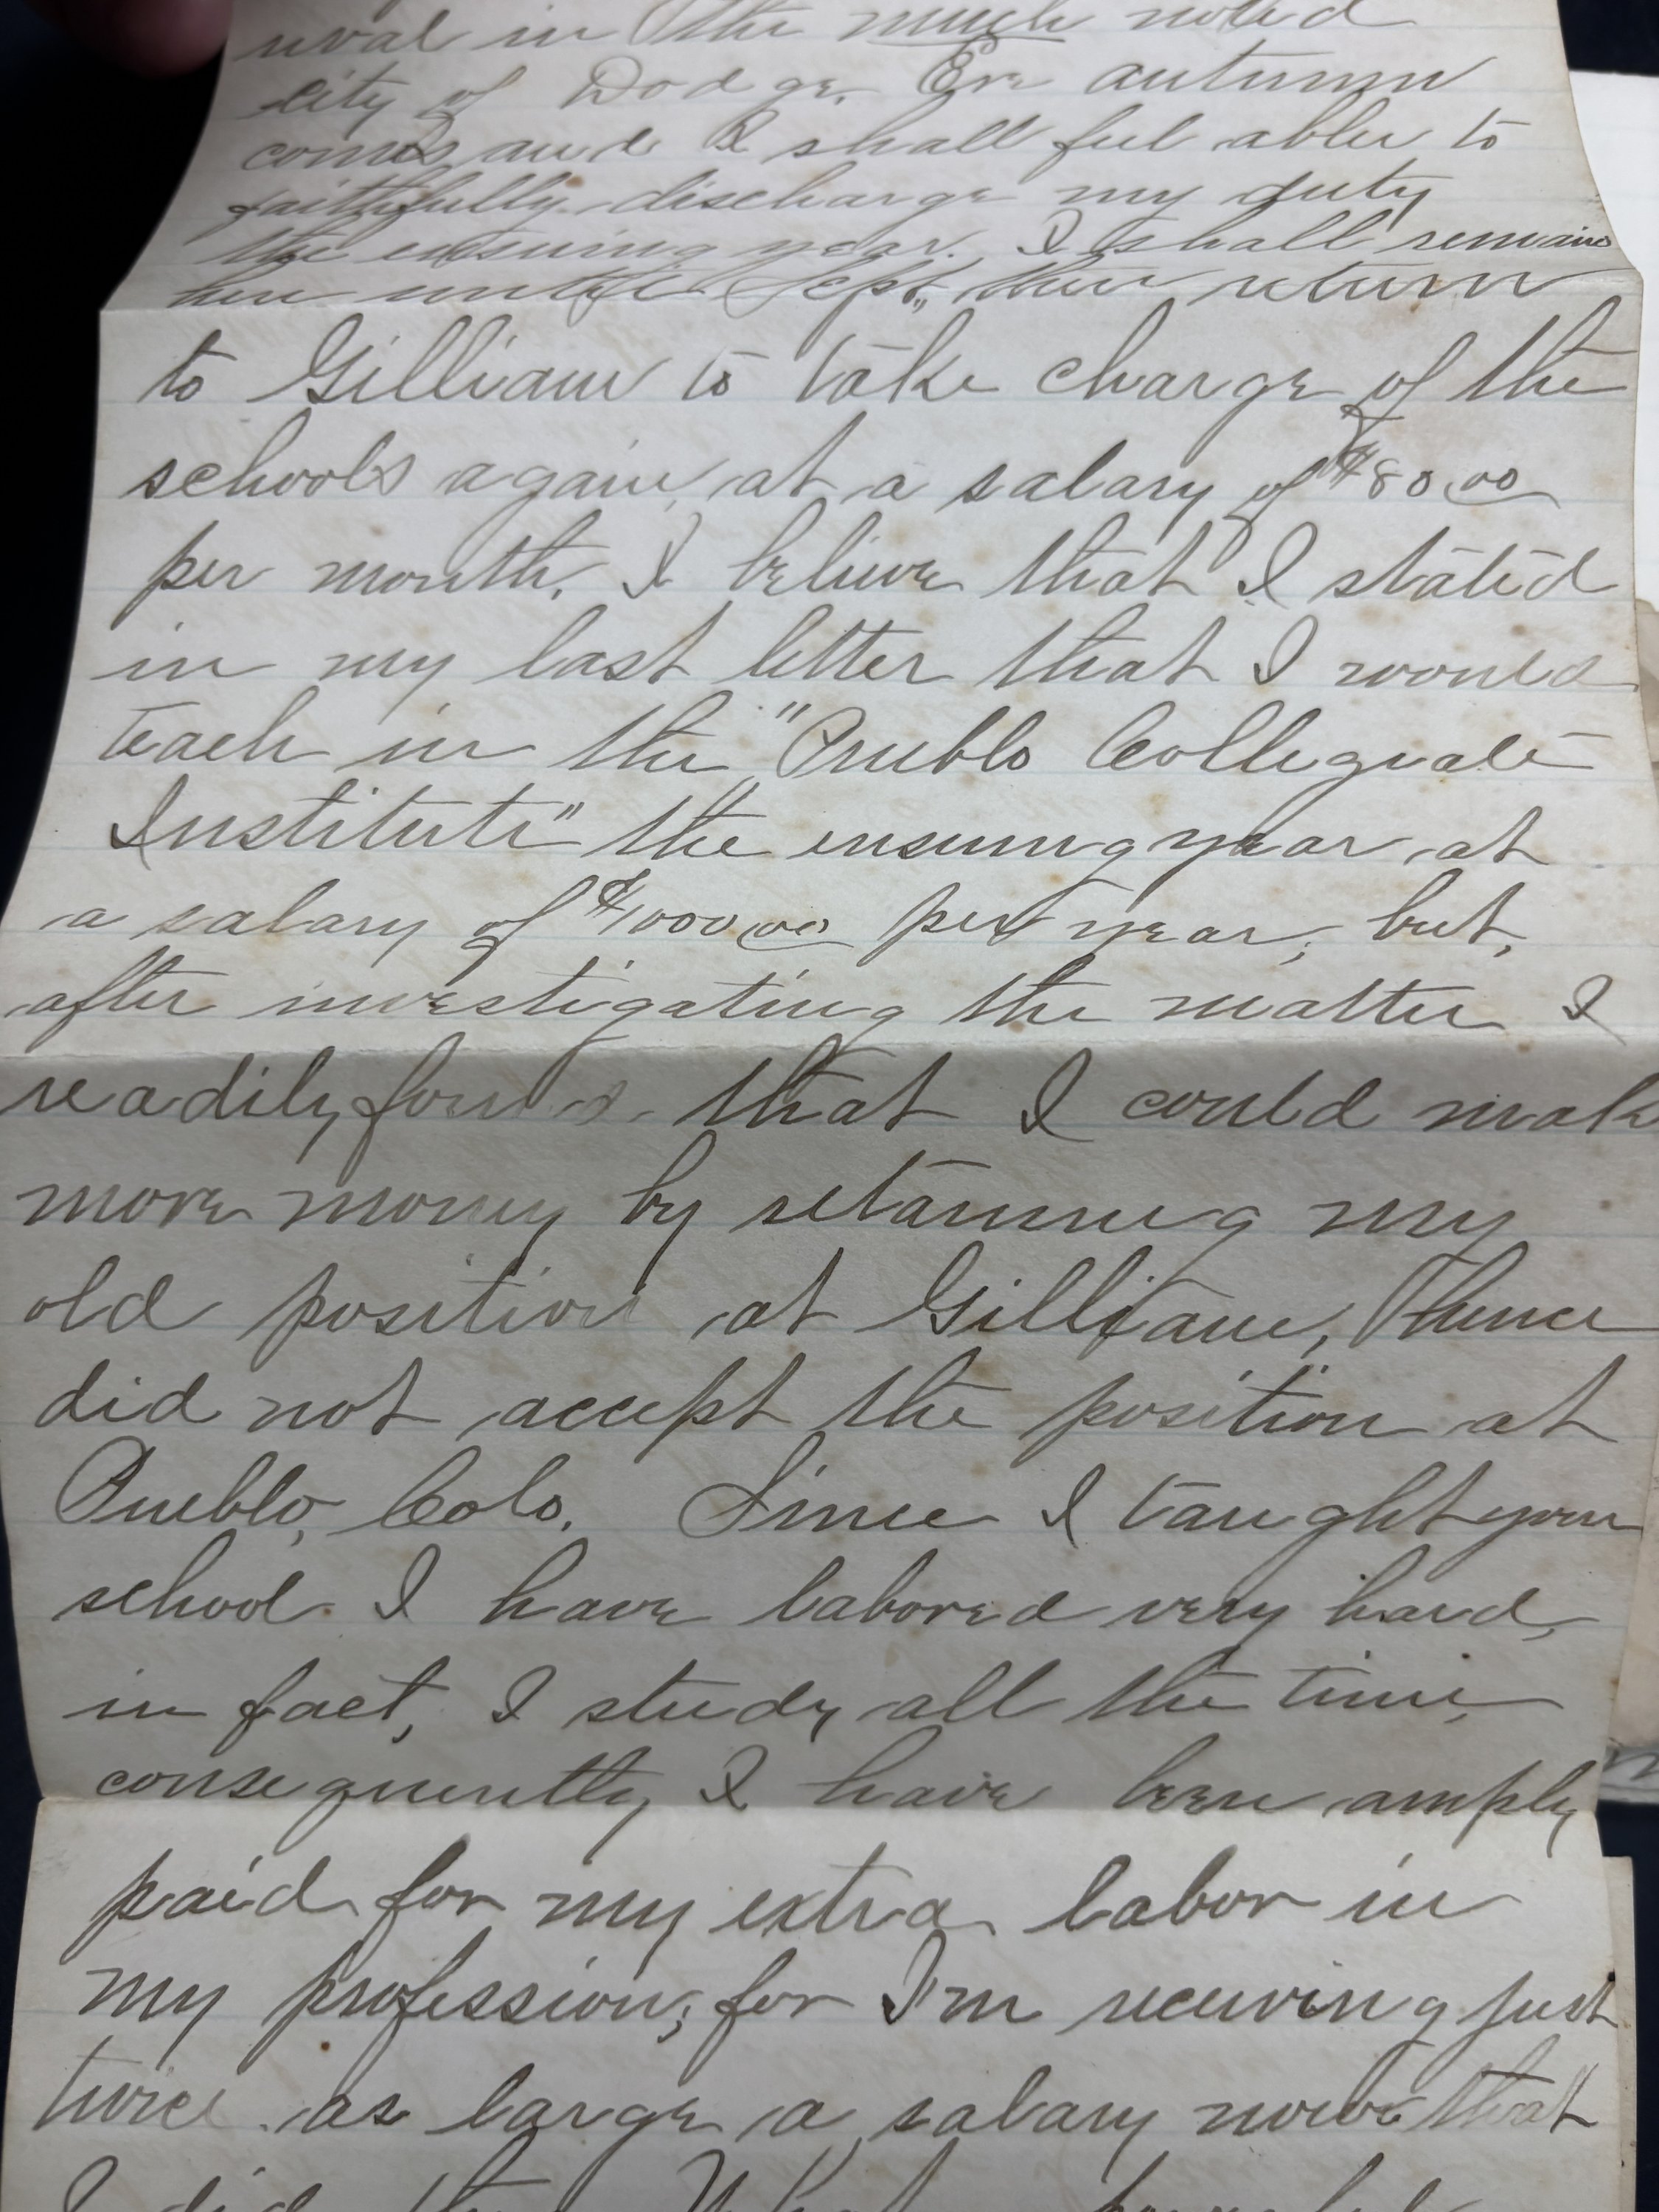 rival in the much noted
city of Dodge. Ere autumn
comes and I shall feel abler to
faithfully discharge my duty
the ensuing year. I shall remain
here until Sept., then return
to Gilliam to take charge of the
schools again, at a salary of $80.00
per month. I believe that I stated
in my last letter that I would
teach in the "Pueblo Collegiate
Institute" the ensuing year at
a salary of $1000.00 per year, but,
after investigating the matter I
readily found that I could mak
more money by retaining my
old position at Gilliam, Thence
did not accept the position at
Pueblo, Colo. Since I taught your
school I have labored very hard,
in fact, I study all the time,
consequently I have been amply
paid for my extra labor in
my profession; for I'm receiving just
twice as large a salary now that
I did then. What